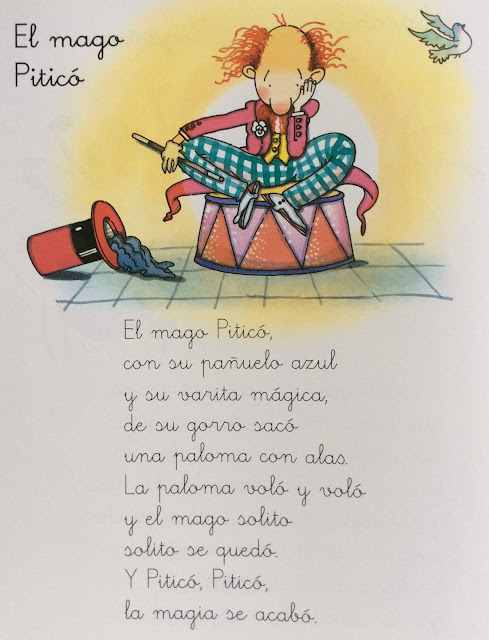 El mago
Piticó
El mago Piticó,
con su pañuelo azul
y su varita mágica,
de su gorro sacó
una paloma con alas.
La paloma voló y voló
y el mago solito
solito se quedó.
Y Piticó, Piticó,
la magia se acabó.